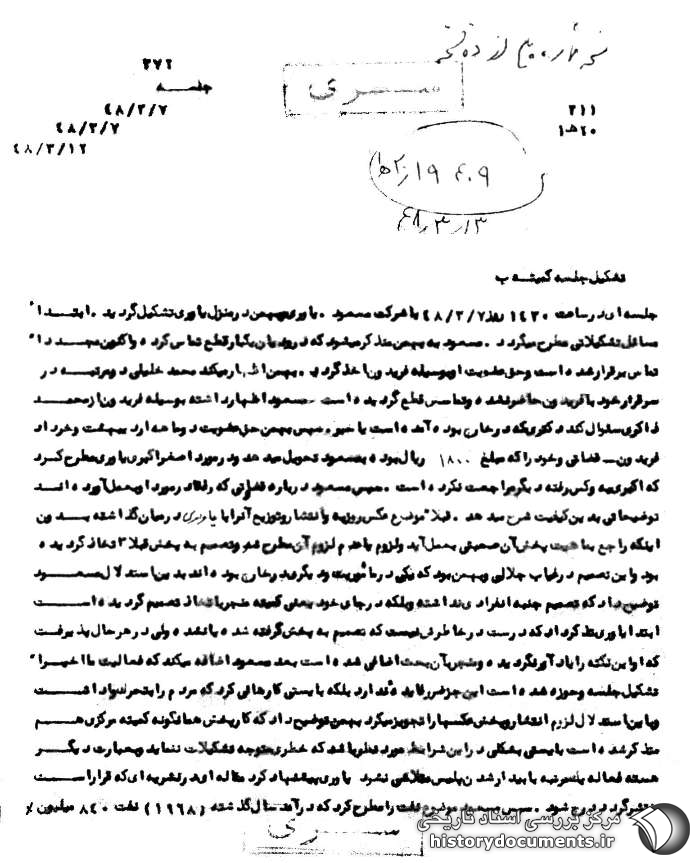 نسخه شماره پنج از ده نسخه
سری
۳۷۲
جلسه
۴۸/۳/۷
۴۸/۳/۷
۴۸/۳/۱۲
۳۱۱
۲۰هـ۱
تشکیل جلسه کمیته ب
جلسه ای در ساعت ۱۴۳۰ روز ۴۸/۳/۷ با شرکت مسعود . یاوری و بهمن در منزل یاوری تشکیل گردید . ابتدا
مسائل تشکیلاتی مطرح میگردد . مسعود به بهمن متذکر میشود که در رودبان یکبار قطع تماس کرده و اکنون مجددا
تماس برقرار شده است و حق عضویت او بوسیله فریدون اخذ گردید . بهمن اظهار میکند محمد خلیلی دو مرتبه در
سر قرار خود با فریدون حاضر نشده و تماسش قطع گردیده است . مسعود اظهار داشته بوسیله فریدون از محمد
ذاکری سئوال کند دکتری که در خارج بوده آمده است یا خیر . سپس بهمن حق عضویت دو ماهه اردیبهشت و خرداد
فریدون ـ قضاتی و خود را که مبلغ ۱۸۰۰ ریال بوده به مسعود تحویل میدهد و در مورد اصغر اکبری یاوری مطرح کرد
که اکبری به وکس رفته دیگر مراجعت نکرده است . سپس مسعود درباره قضاوتی که رفقا در مورد او بعمل آورده اند
توضیحاتی بدین کیفیت شرح میدهد . قبلا موضوع عکس روزبه و انتشار و توزیع آنرا با یاوری در میان گذاشته بدون
اینکه راجع بماهیت پخش آن صحبتی بعمل آید و لزوم یا عدم لزوم آن مطرح شود تصمیم به پخش قبلا اتخاذ گردیده
بود و این تصمیم در غیاب جلالی و بهمن بود که یکی در ماموریت و دیگری در خارج بوده اند بدین استدلال مسعود
توضیح داد که تصمیم جنبه انفرادی نداشته و بلکه در جای خود یعنی کمیته منجر باتخاذ تصمیم گردیده است
ابتدا یاوری تذکر داد که درست در خاطرش نیست که تصمیم به پخش گرفته شده باشد ولی در هر حال پذیرفت
که او این نکته را یادآور نگردیده و منجر بآن بحث اضافی شده است بعد مسعود اضافه میکند که فعالیت ما اخیرا
تشکیل جلسه و حوزه شده است این جز ضرر فایده ندارد بلکه بایستی کارهائی کرد که مردم را بتحرک واداشت
و با این استدلال لزوم انتشار و پخش عکسها را تجویز میکرد بهمن توضیح داد که کار پخش همانگونه کمیته مرکزی هم
متذکر شده است بایستی بشکلی در این شرایط مورد نظر باشد که خطری متوجه تشکیلات ننماید و بعبارت دیگر
هسته فعاله یکمرتبه با بیدار شدن پلیس متلاشی نشود یاوری پیشنهاد کرد مقاله ای در نشریه ای که قرار است
منتشر گردد درج شود . سپس مسعود موضوع نفت را مطرح کرد که درآمد سال گذشته (۱۹۶۸) نفت ۸۴۰ میلیون
سری
مرکز بررسی اسناد تاریخی
historydocuments.ir